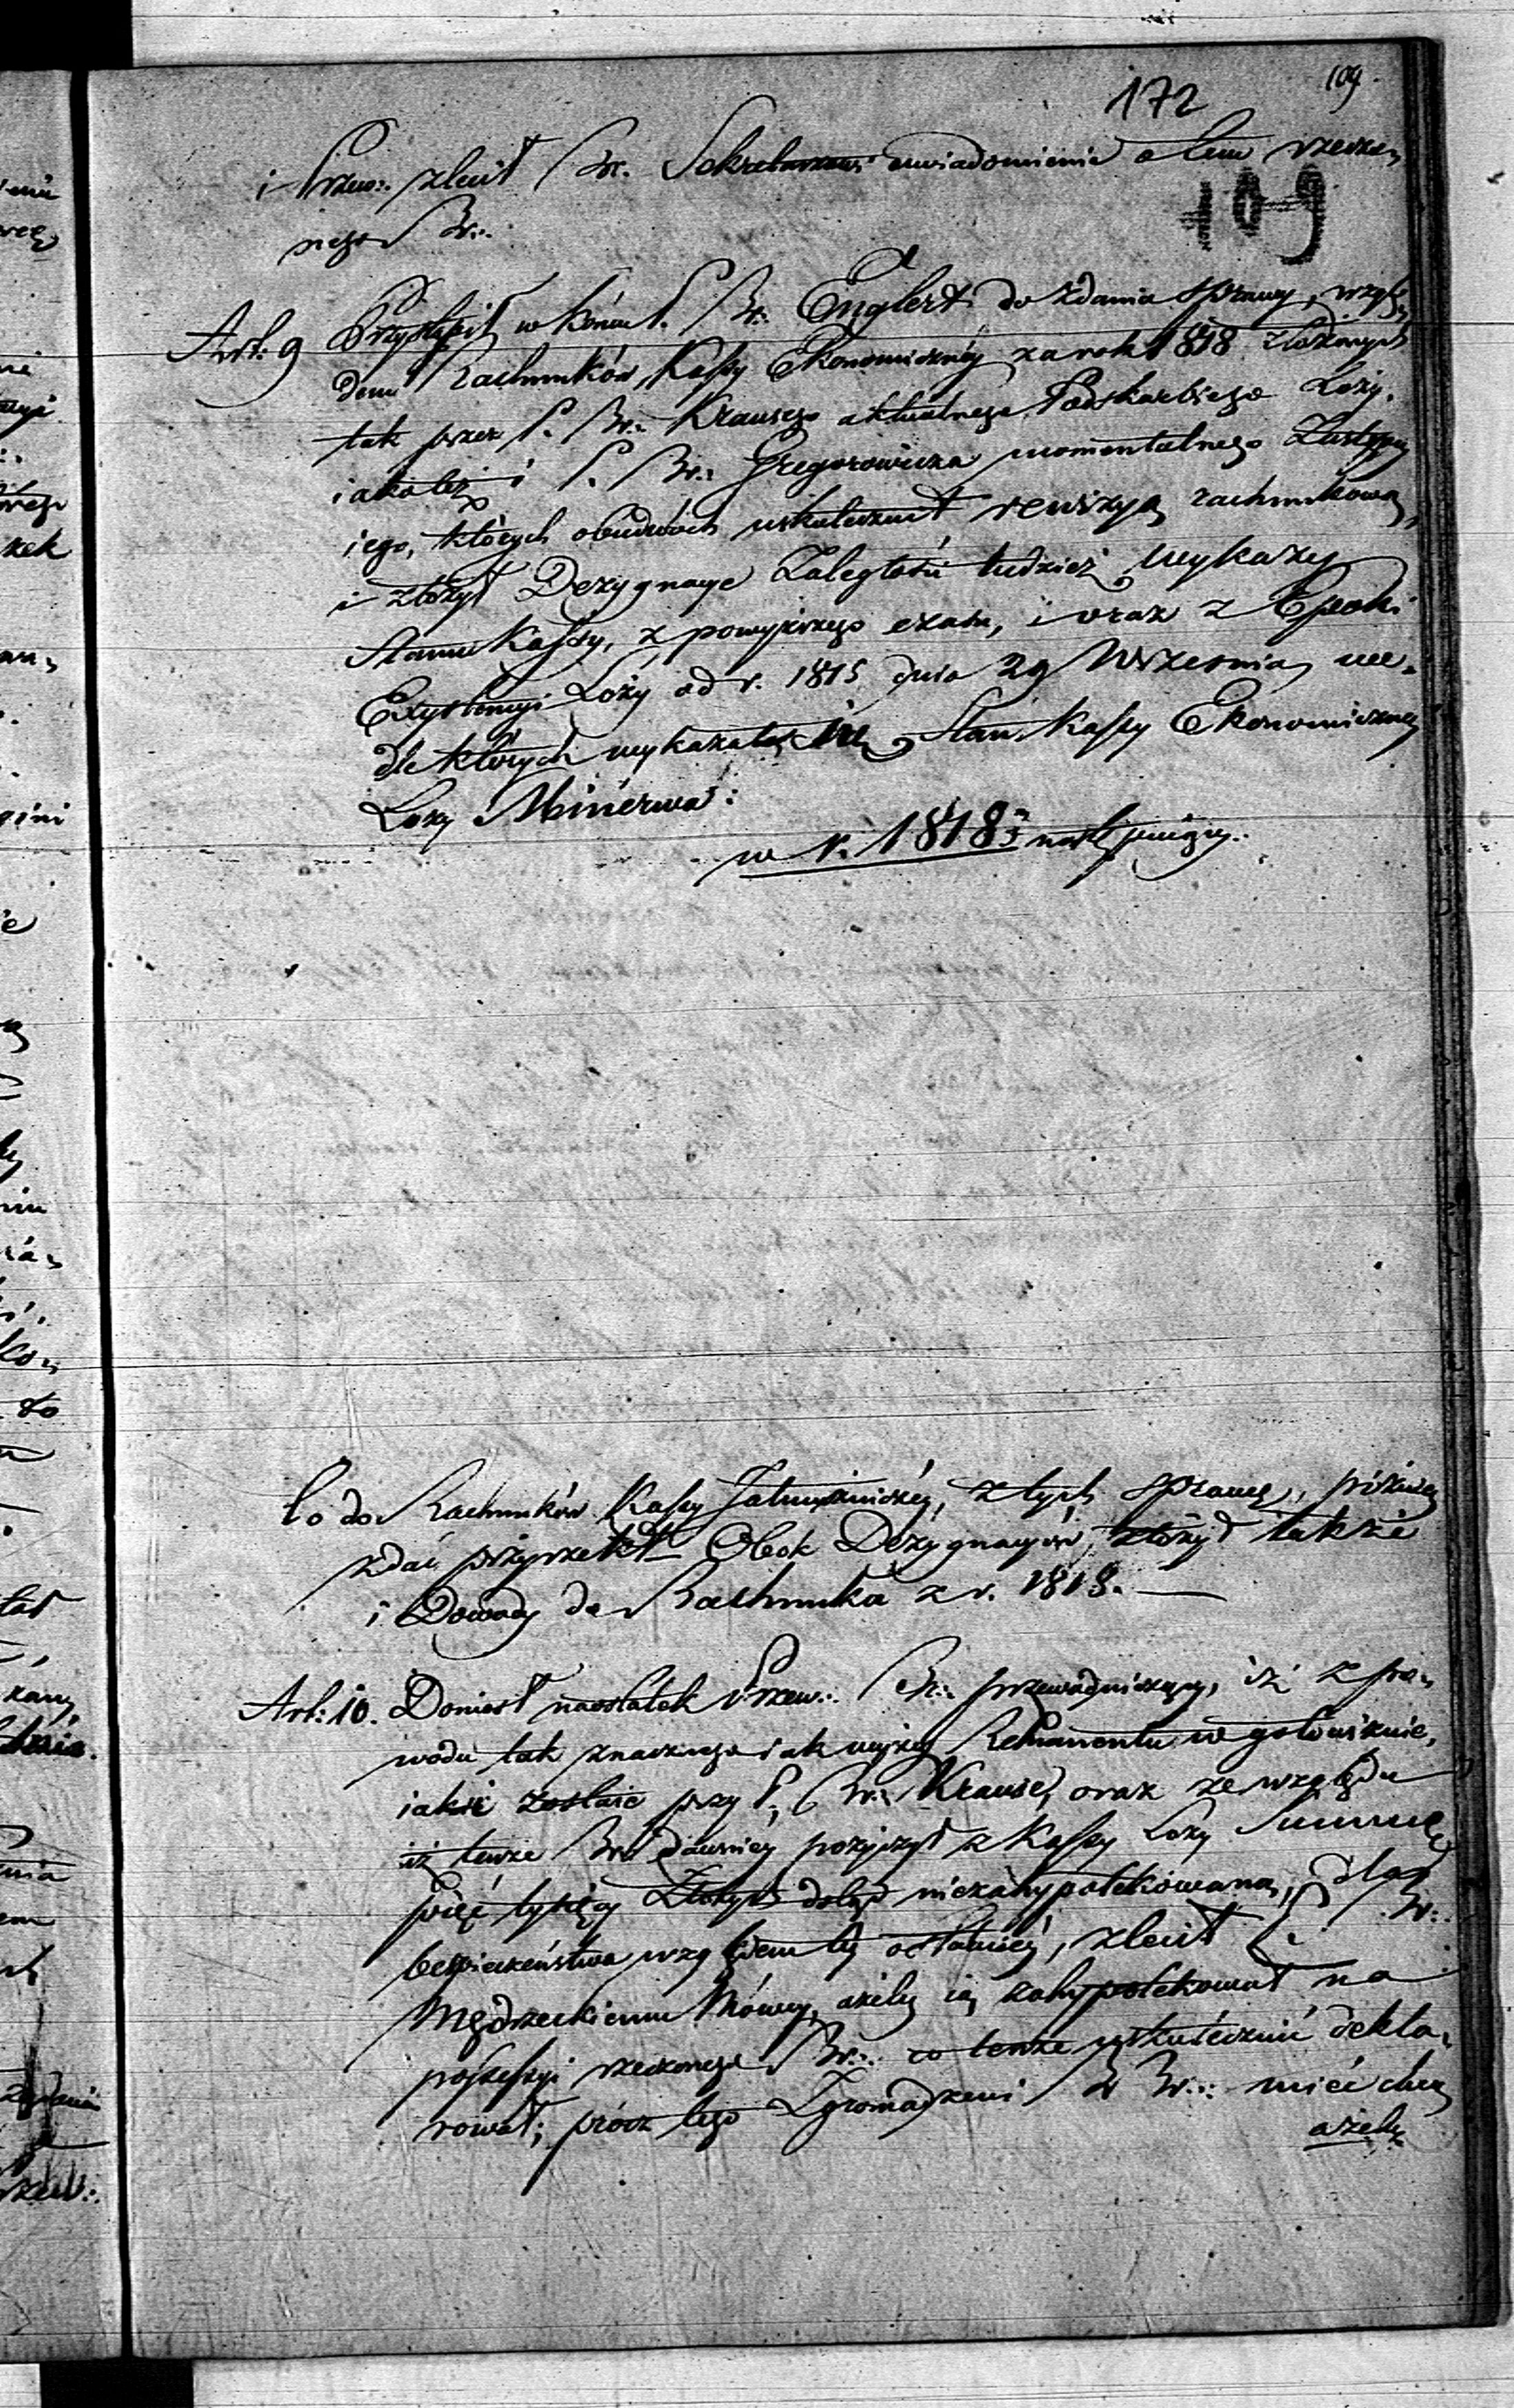 109.
172
i Przew:. zlecił Br. Sekretarzowi uwiadomienie o tem rzeczo-
nego Br:.
109
Art: 9 Przystąpił w końcu P. Br:. Englert do zdania sprawy, wzglę-
dem Rachunków Kassy Ekonomicznéy za rok 1818 złożonych
tak przez P. Br:. Krausego aktualnego Podskarbiego Loży,
iakoteż i P. Br:. Gregorowicza momentalnego Zastępcy
iego, których obudwóch uskutecznił rewizyą rachunkową,
i złożył Dezygnacye Zaległości tudzież wykazy
Stanu Kassy, z powyższego czasu, i oraz z Epoki
Exystencyi Loży od r. 1815 dnia 29 Września, we-
dle których wykazał się Stan Kassy Ekonomicznéy
Loży Minerwa:
w r. 1818 następuiący.
Co do Rachunków Kassy Jałmużniczéy, z tych sprawę, późniey
zdać przyrzekł. Obok Dezygnacyów, złożył także
i Dowody do Rachunku z r. 1818. —
Art: 10. Doniosł naostatek Przew:. Br:. przewodniczący, iż z po-
wodu tak znacznego iak wyżey Remanentu w gotowiznie,
iakie zostaie przy P. Br:. Krause, oraz ze względu
iż tenże Br:. dawniéy pożyczył z Kassy Loży Summę
pięć tysięcy Złotych dotąd niezahypotekowaną, dla
bespieczeństwa względem téy ostatniéy, zlecił P. Br:.
Mędrzeckiemu Mówcy, ażeby ią zahypotekował na
possessyi rzeczonego Br:. co tenże uskutecznić dekla-
rował; prócz tego Zgromadzeni Br:. mieć chcą
ażeby